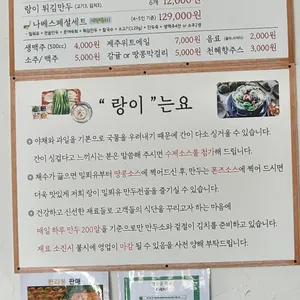 랑이 튀김만두 (고기3, 김치3) 6개 12,000원
나베스페셜세트 (4~5인 기준) 129,000원
생맥주 (500cc) 4,000원 제주위트에일 7,000원 음료 2,000원
소주/ 맥주 5,000원 감귤 or 땅콩막걸리 5,000원 천혜향주스 3,000원
“ 랑이 ”는요
야채와 과일을 기본으로 국물을 우려내기 때문에 간이 다소 싱거울 수 있습니다.
간이 싱겁다고 느끼시는 분은 말씀해 주시면 수제소스를 첨가해 드립니다.
채수가 끓으면 밀푀유부터 땅콩소스에 찍어 드신 후, 만두는 폰즈소스에 찍어 드시면
더욱 맛있게 저희 랑이 밀푀유 만두전골을 즐기실 수 있습니다.
건강하고 신선한 재료들로 고객들의 식단을 꾸리고자 하는 마음에
매일 하루 만두 200알을 기준으로만 만두소와 겉절이 김치를 준비하고 있습니다.
재료 소진시 불시에 영업이 마감 될 수 있음을 사전 양해 부탁드립니다.
한라봉 판매